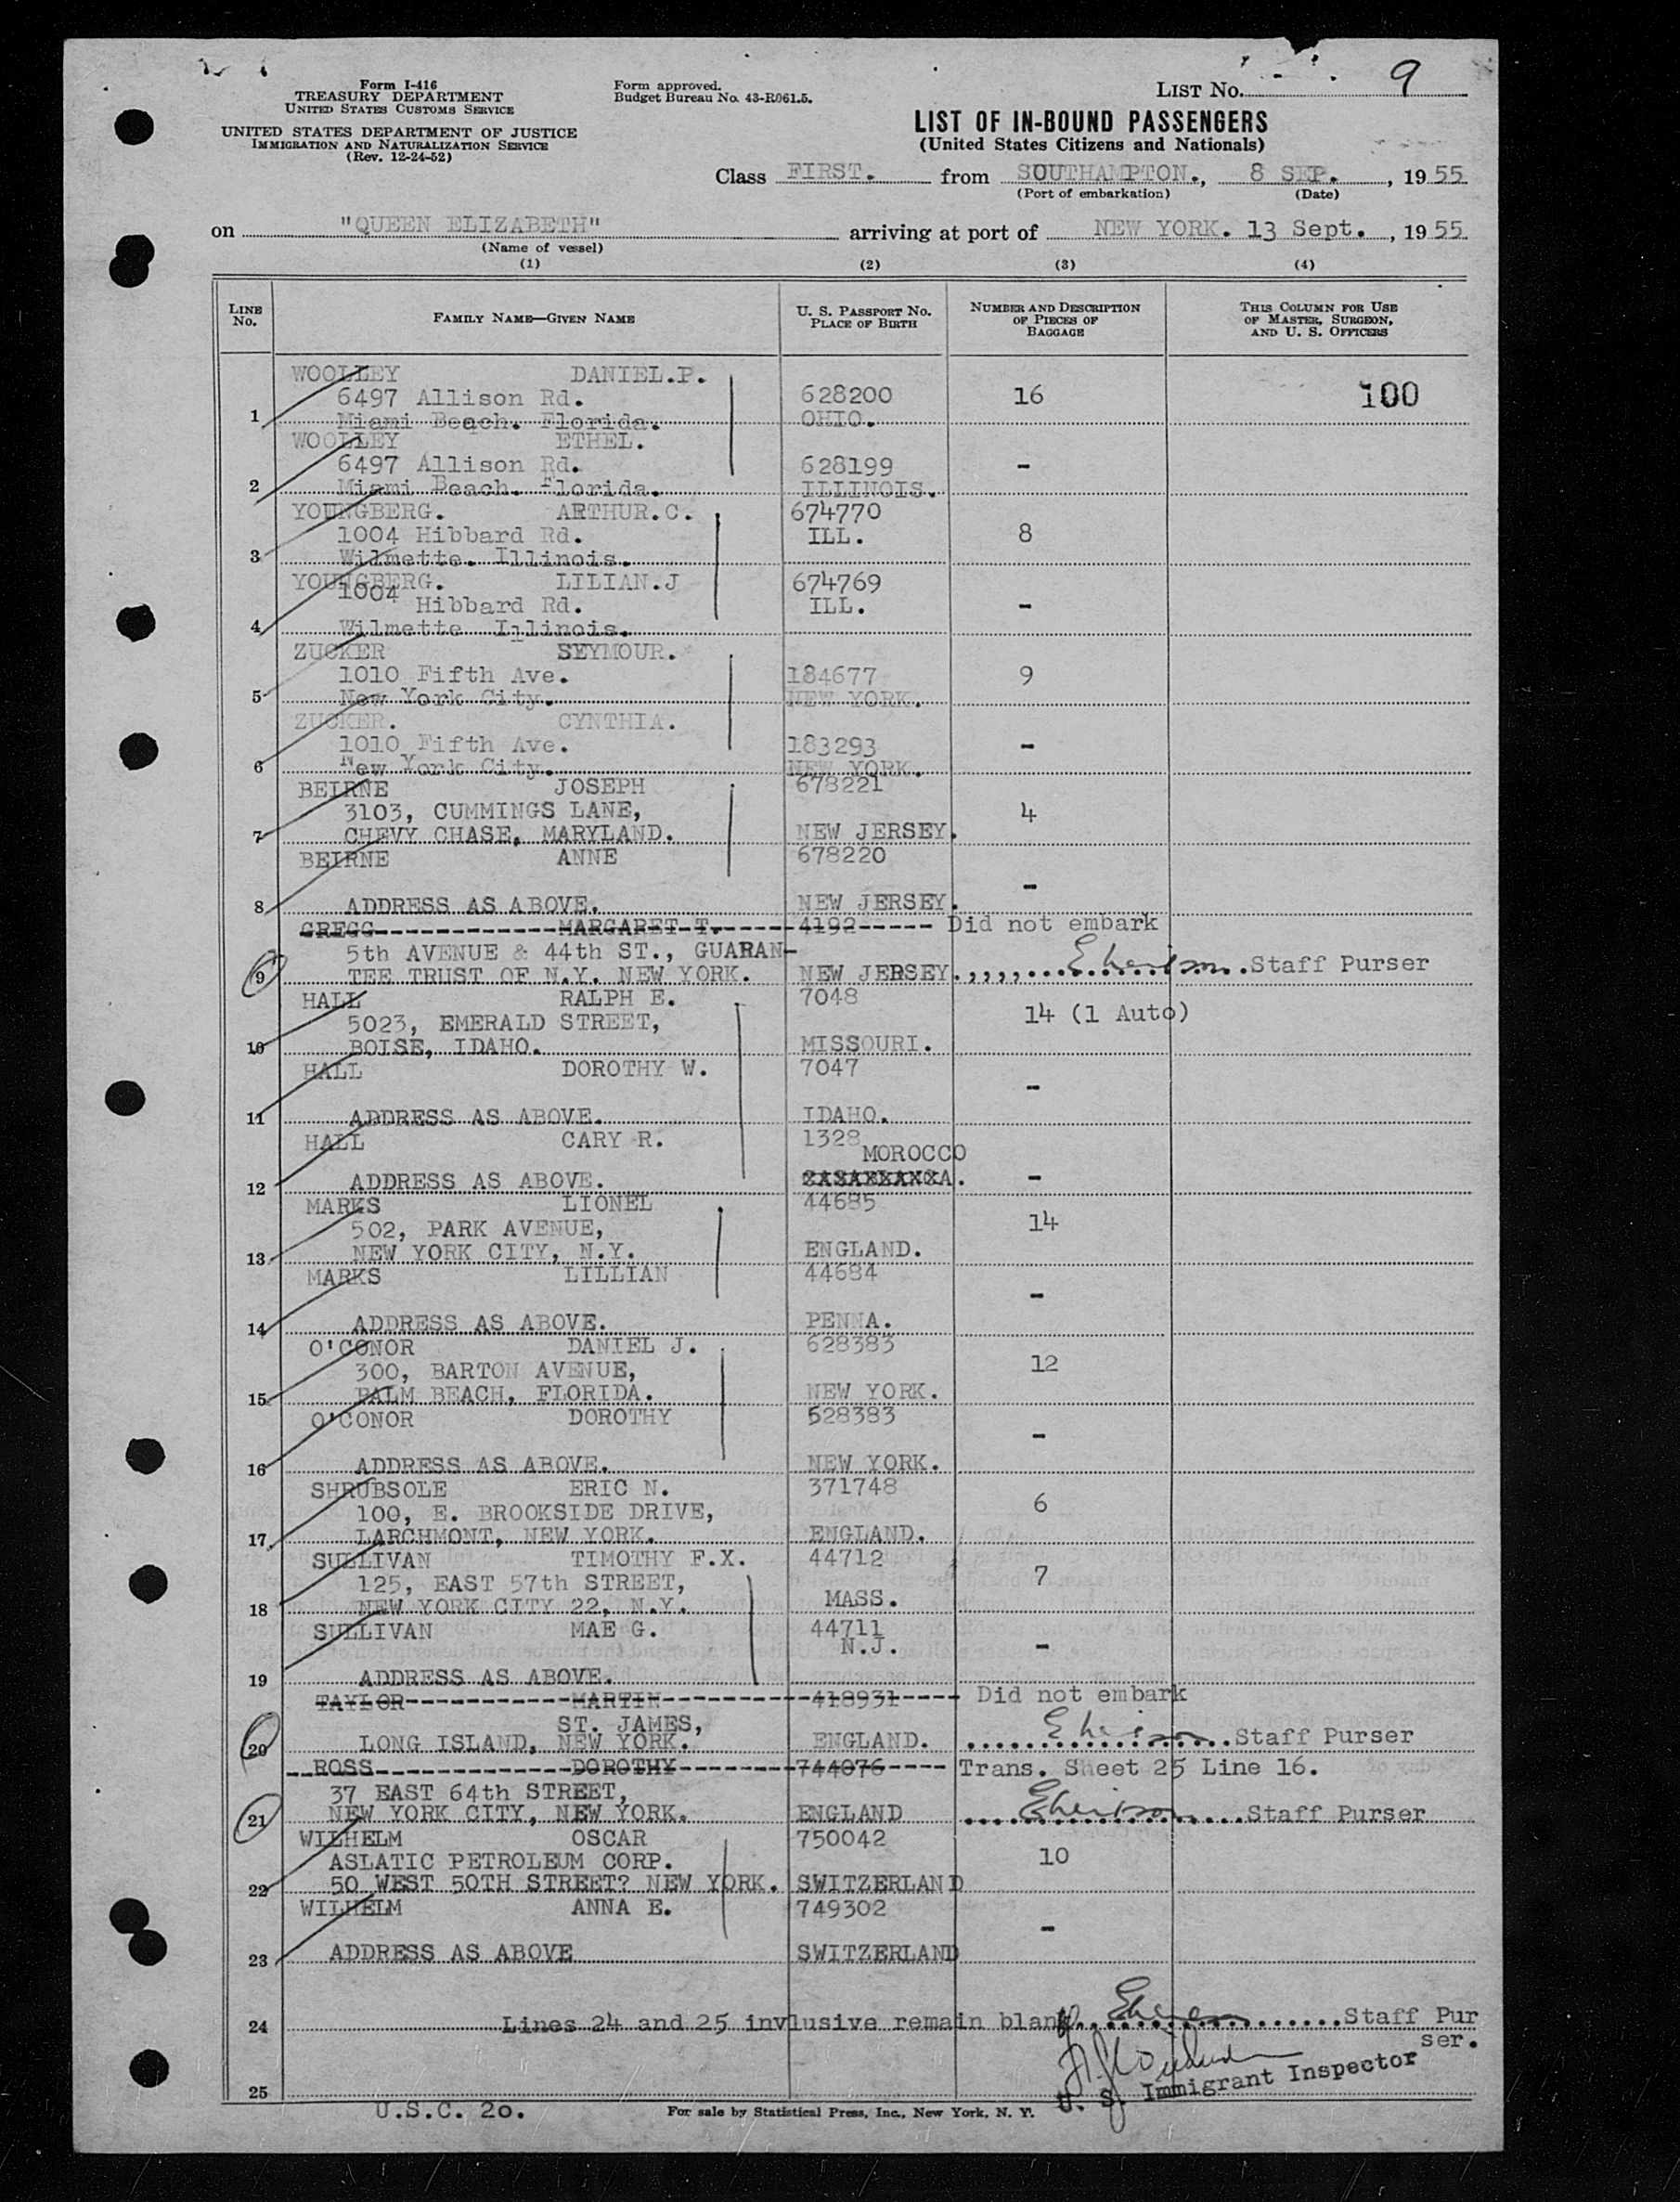 Form I-416
TREASURY DEPARTMENT
UNITED STATES CUSTOMS SERVICE
UNITED STATES DEPARTMENT OF JUSTICE
IMMIGRATION AND NATURALIZATION SERVICE
(Rev. 12-24-52)
Form approved.
Budget Bureau No. 43-R061.5.
LIST No. 9
LIST OF IN-BOUND PASSENGERS
(United States Citizens and Nationals)
Class FIRST. from SOUTHAMPTON., 8 SEP., 1955
(Port of embarkation) (Date)
on "QUEEN ELIZABETH" arriving at port of NEW YORK. 13 Sept., 1955
(Name of vessel)
(1) (2) (3) (4)
LINE No. FAMILY NAME—GIVEN NAME U. S. PASSPORT NO. PLACE OF BIRTH NUMBER AND DESCRIPTION OF PIECES OF BAGGAGE THIS COLUMN FOR USE OF MASTER, SURGEON, AND U. S. OFFICERS
WOOLLEY DANIEL.P.
6497 Allison Rd. 628200 16 100
1 Miami Beach. Florida. OHIO.
WOOLLEY ETHEL.
6497 Allison Rd. 628199 -
2 Miami Beach. Florida. ILLINOIS.
YOUNGBERG. ARTHUR.C. 674770
1004 Hibbard Rd. ILL. 8
3 Wilmette. Illinois.
YOUNGBERG. LILIAN.J 674769
1004 Hibbard Rd. ILL. -
4 Wilmette Illinois.
ZUCKER SEYMOUR.
1010 Fifth Ave. 184677 9
5 New York City. NEW YORK.
ZUCKER. CYNTHIA.
1010 Fifth Ave. 183293 -
6 New York City. NEW YORK.
BEIRNE JOSEPH 678221
3103, CUMMINGS LANE, 4
7 CHEVY CHASE, MARYLAND. NEW JERSEY.
BEIRNE ANNE 678220
-
8 ADDRESS AS ABOVE. NEW JERSEY.
GREGG MARGARET T. 4192 Did not embark
5th AVENUE & 44th ST., GUARAN-
9 TEE TRUST OF N.Y. NEW YORK. NEW JERSEY. Staff Purser
HALL RALPH E. 7048
5023, EMERALD STREET, 14 (1 Auto)
10 BOISE, IDAHO. MISSOURI.
HALL DOROTHY W. 7047
-
11 ADDRESS AS ABOVE. IDAHO.
HALL CARY R. 1328
MOROCCO
12 ADDRESS AS ABOVE. -
MARKS LIONEL 44685
502, PARK AVENUE, 14
13 NEW YORK CITY, N.Y. ENGLAND.
MARKS LILLIAN 44684
-
14 ADDRESS AS ABOVE. PENNA.
O'CONOR DANIEL J. 628383
300, BARTON AVENUE, 12
15 PALM BEACH, FLORIDA. NEW YORK.
O'CONOR DOROTHY 628383
-
16 ADDRESS AS ABOVE. NEW YORK.
SHRUBSOLE ERIC N. 371748
100, E. BROOKSIDE DRIVE, 6
17 LARCHMONT, NEW YORK. ENGLAND.
SULLIVAN TIMOTHY F.X. 44712
125, EAST 57th STREET, 7
18 NEW YORK CITY 22, N.Y. MASS.
SULLIVAN MAE G. 44711
N.J. -
19 ADDRESS AS ABOVE.
TAYLOR MARTIN 418931 Did not embark
ST. JAMES,
20 LONG ISLAND, NEW YORK. ENGLAND. Staff Purser
ROSS DOROTHY 744076 Trans. Sheet 25 Line 16.
37 EAST 64th STREET,
21 NEW YORK CITY, NEW YORK. ENGLAND Staff Purser
WILHELM OSCAR 750042
ASLATIC PETROLEUM CORP. 10
22 50 WEST 50TH STREET? NEW YORK. SWITZERLAND
WILHELM ANNA E. 749302
-
23 ADDRESS AS ABOVE SWITZERLAND
24 Lines 24 and 25 invlusive remain blank. Staff Pur
ser.
U. S. Immigrant Inspector
25
U.S.C. 20. For sale by Statistical Press, Inc., New York, N. Y.